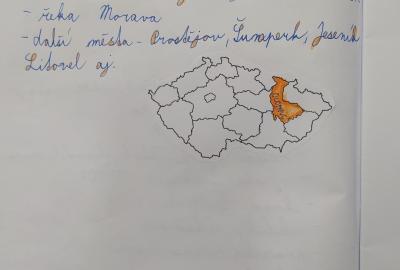 - řeka Morava
- další města - Prostějov, Šumperk, Jeseník
Litovel aj.